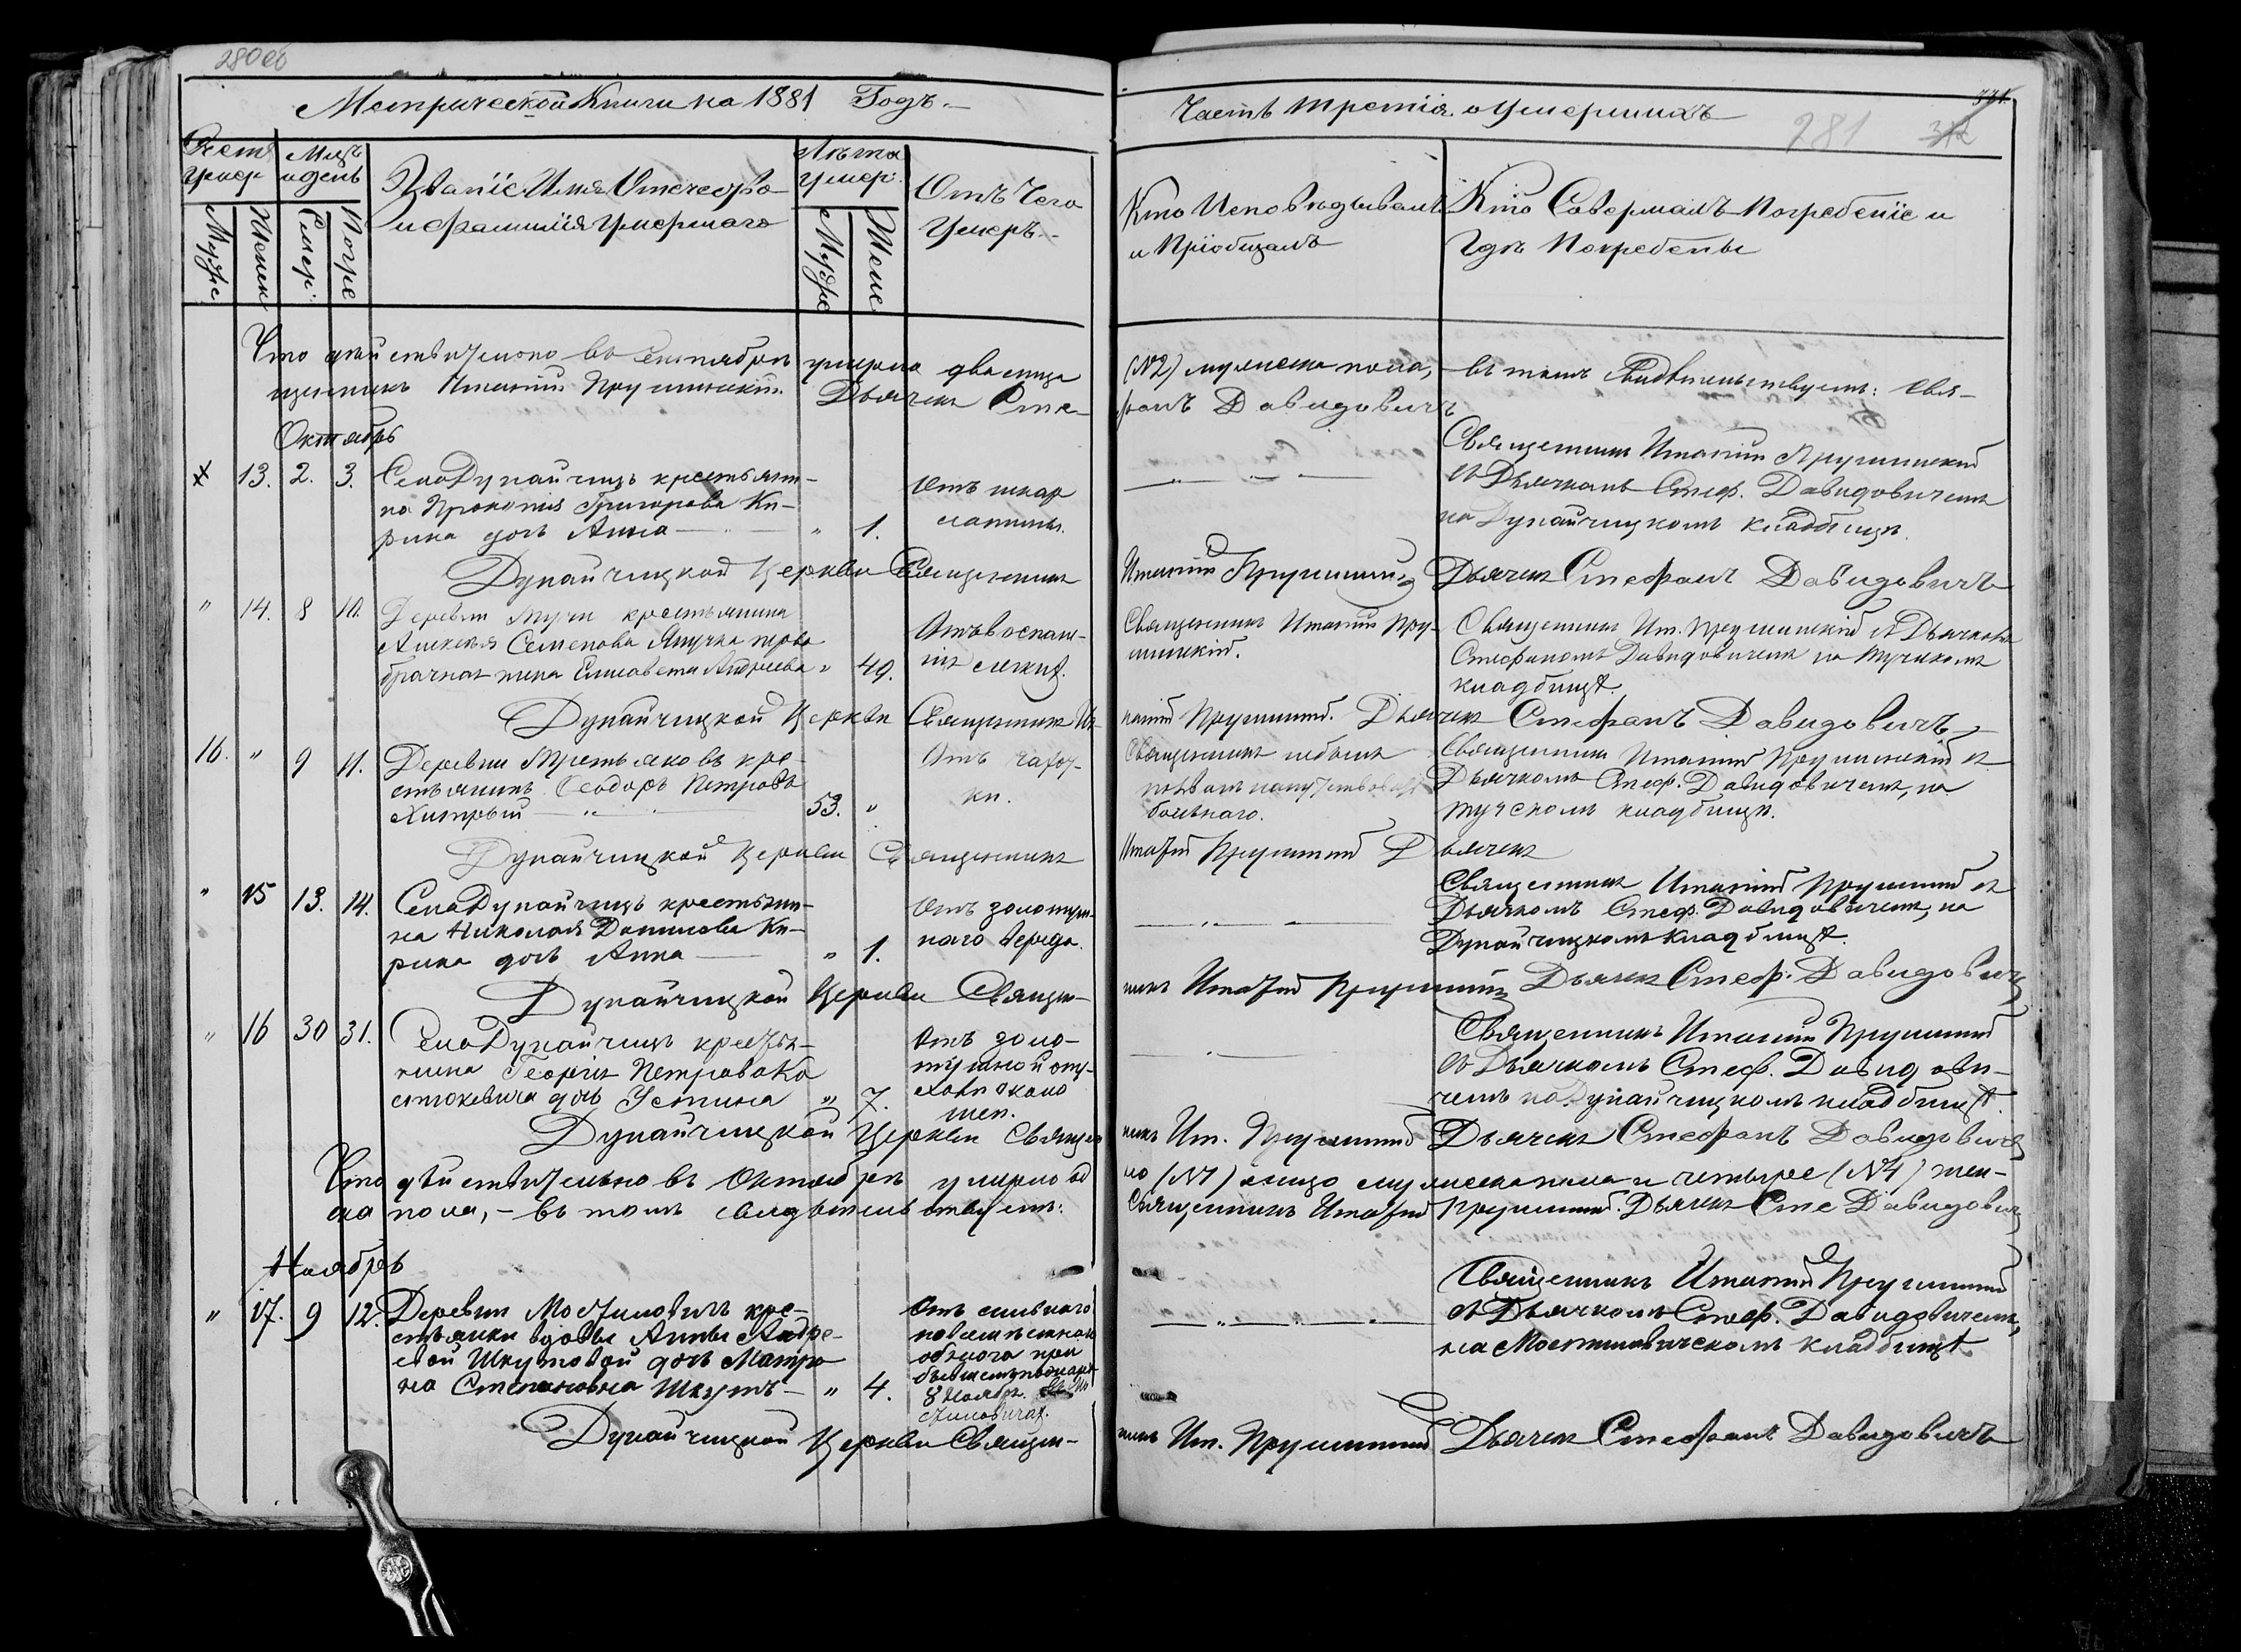 280об
Метрической Книги на 1881 Годъ.
Часть третія о Умершихъ
331.
281
Счетъ умер
Мцъ и день
Званіе Имя Отчество и фамилія умершаго
Лѣта умер.
Отъ Чего Умеръ.
Кто Исповѣдывалъ и Пріобщалъ
Кто Совершалъ Погребеніе и Гдѣ Погребены
Муже
Женск
Смер.
Погре
Муже
Женс
Что дѣйствительно въ Сентябрѣ умерло два лица (№2) мужеска пола, – въ томъ свидѣтельствуетъ: Свя-
щенникъ Игнатій Прушинскій. Дьячекъ Сте-
фанъ Давидовичъ
Октябрь
13. 2. 3. Села Дунайчицъ крестьяни-
на Прокопія Григорова Ки-
рика дочь Анна – „ 1.
Отъ скар
латины.
Священникъ Игнатій Прушинскій
съ Дьячкомъ Стеф. Давидовичемъ
на Дунайчицкомъ кладбищѣ.
Дунайчицкой Церкви Священникъ Игнатій Прушинскій Дьячекъ Стефанъ Давидовичъ
„ 14. 8 10. Деревни Тучи крестьянина
Алексѣя Семенова перво
брачная жена Елисавета Андреева „ 49.
Отъ воспале-
нія легких.
Священникъ Игнатій Пру-
шинскій.
Священникъ Иг. Прушинскій съ Дьячкомъ
Стефаномъ Давидовичемъ на Тучскомъ
кладбищѣ.
Дунайчицкой Церкви Священникъ Иг-
натій Прушинскій. Дьячекъ Стефанъ Давидовичъ
16. „ 9 11. Деревни Третьяковъ кре-
стьянинъ Ѳеодоръ Петровъ
Хитрый – 53. „
Отъ чахот-
ки.
Священникъ небылъ
больнаго.
Священникъ Игнатій Прушинскій съ
Дьячкомъ Стеф. Давидовичемъ, на
Тучскомъ кладбищѣ.
Дунайчицкой Церкви Священникъ Игнатій Прушинскій Дьячекъ
„ 15 13. 14. Села Дунайчицъ крестьяни-
на Николая Данилова Ки-
рика дочь Анна „ 1.
Отъ золотуш-
наго вереда.
Священникъ Игнатій Прушинскій съ
Дьячкомъ Стеф. Давидовичемъ, на
Дунайчицкомъ кладбищѣ.
Дунайчицкой Церкви Священ-
никъ Игнатій Прушинскій Дьячекъ Стеф. Давидовичъ
„ 16 30 31. Села Дунайчицъ крестья-
нина Георгія Петрова Ко
стюкевича дочь Устина „ 7.
Отъ золо-
тушной опу-
холи около
шеи.
Священникъ Игнатій Прушинскій
съ Дьячкомъ Стеф. Давидови-
чемъ на Дунайчицкомъ кладбищѣ.
Дунайчицкой Церкви Священ
никъ Иг. Прушинскій Дьячекъ Стефанъ Давидовичъ
Что дѣйствительно въ Октябрѣ умерло од
но (№1) лицо мужеска пола и четыре (№4) жен-
ска пола, – въ томъ свидѣтельствуетъ:
Священникъ Игнатій Прушинскій. Дьячекъ Сте Давидовичъ
Ноябрь
„ 17. 9 12. Деревни Мостиловичъ кре-
стьянки вдовы Анны Андре-
евой Шкутовой дочь Матро
на Степановна Шкутъ – „ 4.
Отъ сильнаго
повсемѣстнаго
обжога при
бывшемъ пожарѣ
8 Ноябр.
Священникъ Игнатій Прушинскій
съ Дьячкомъ Стеф. Давидовичемъ,
на Мостиловичскомъ кладбищѣ.
Дунайчицкой Церкви Священ-
никъ Иг. Прушинскій Дьячекъ Стефанъ Давидовичъ